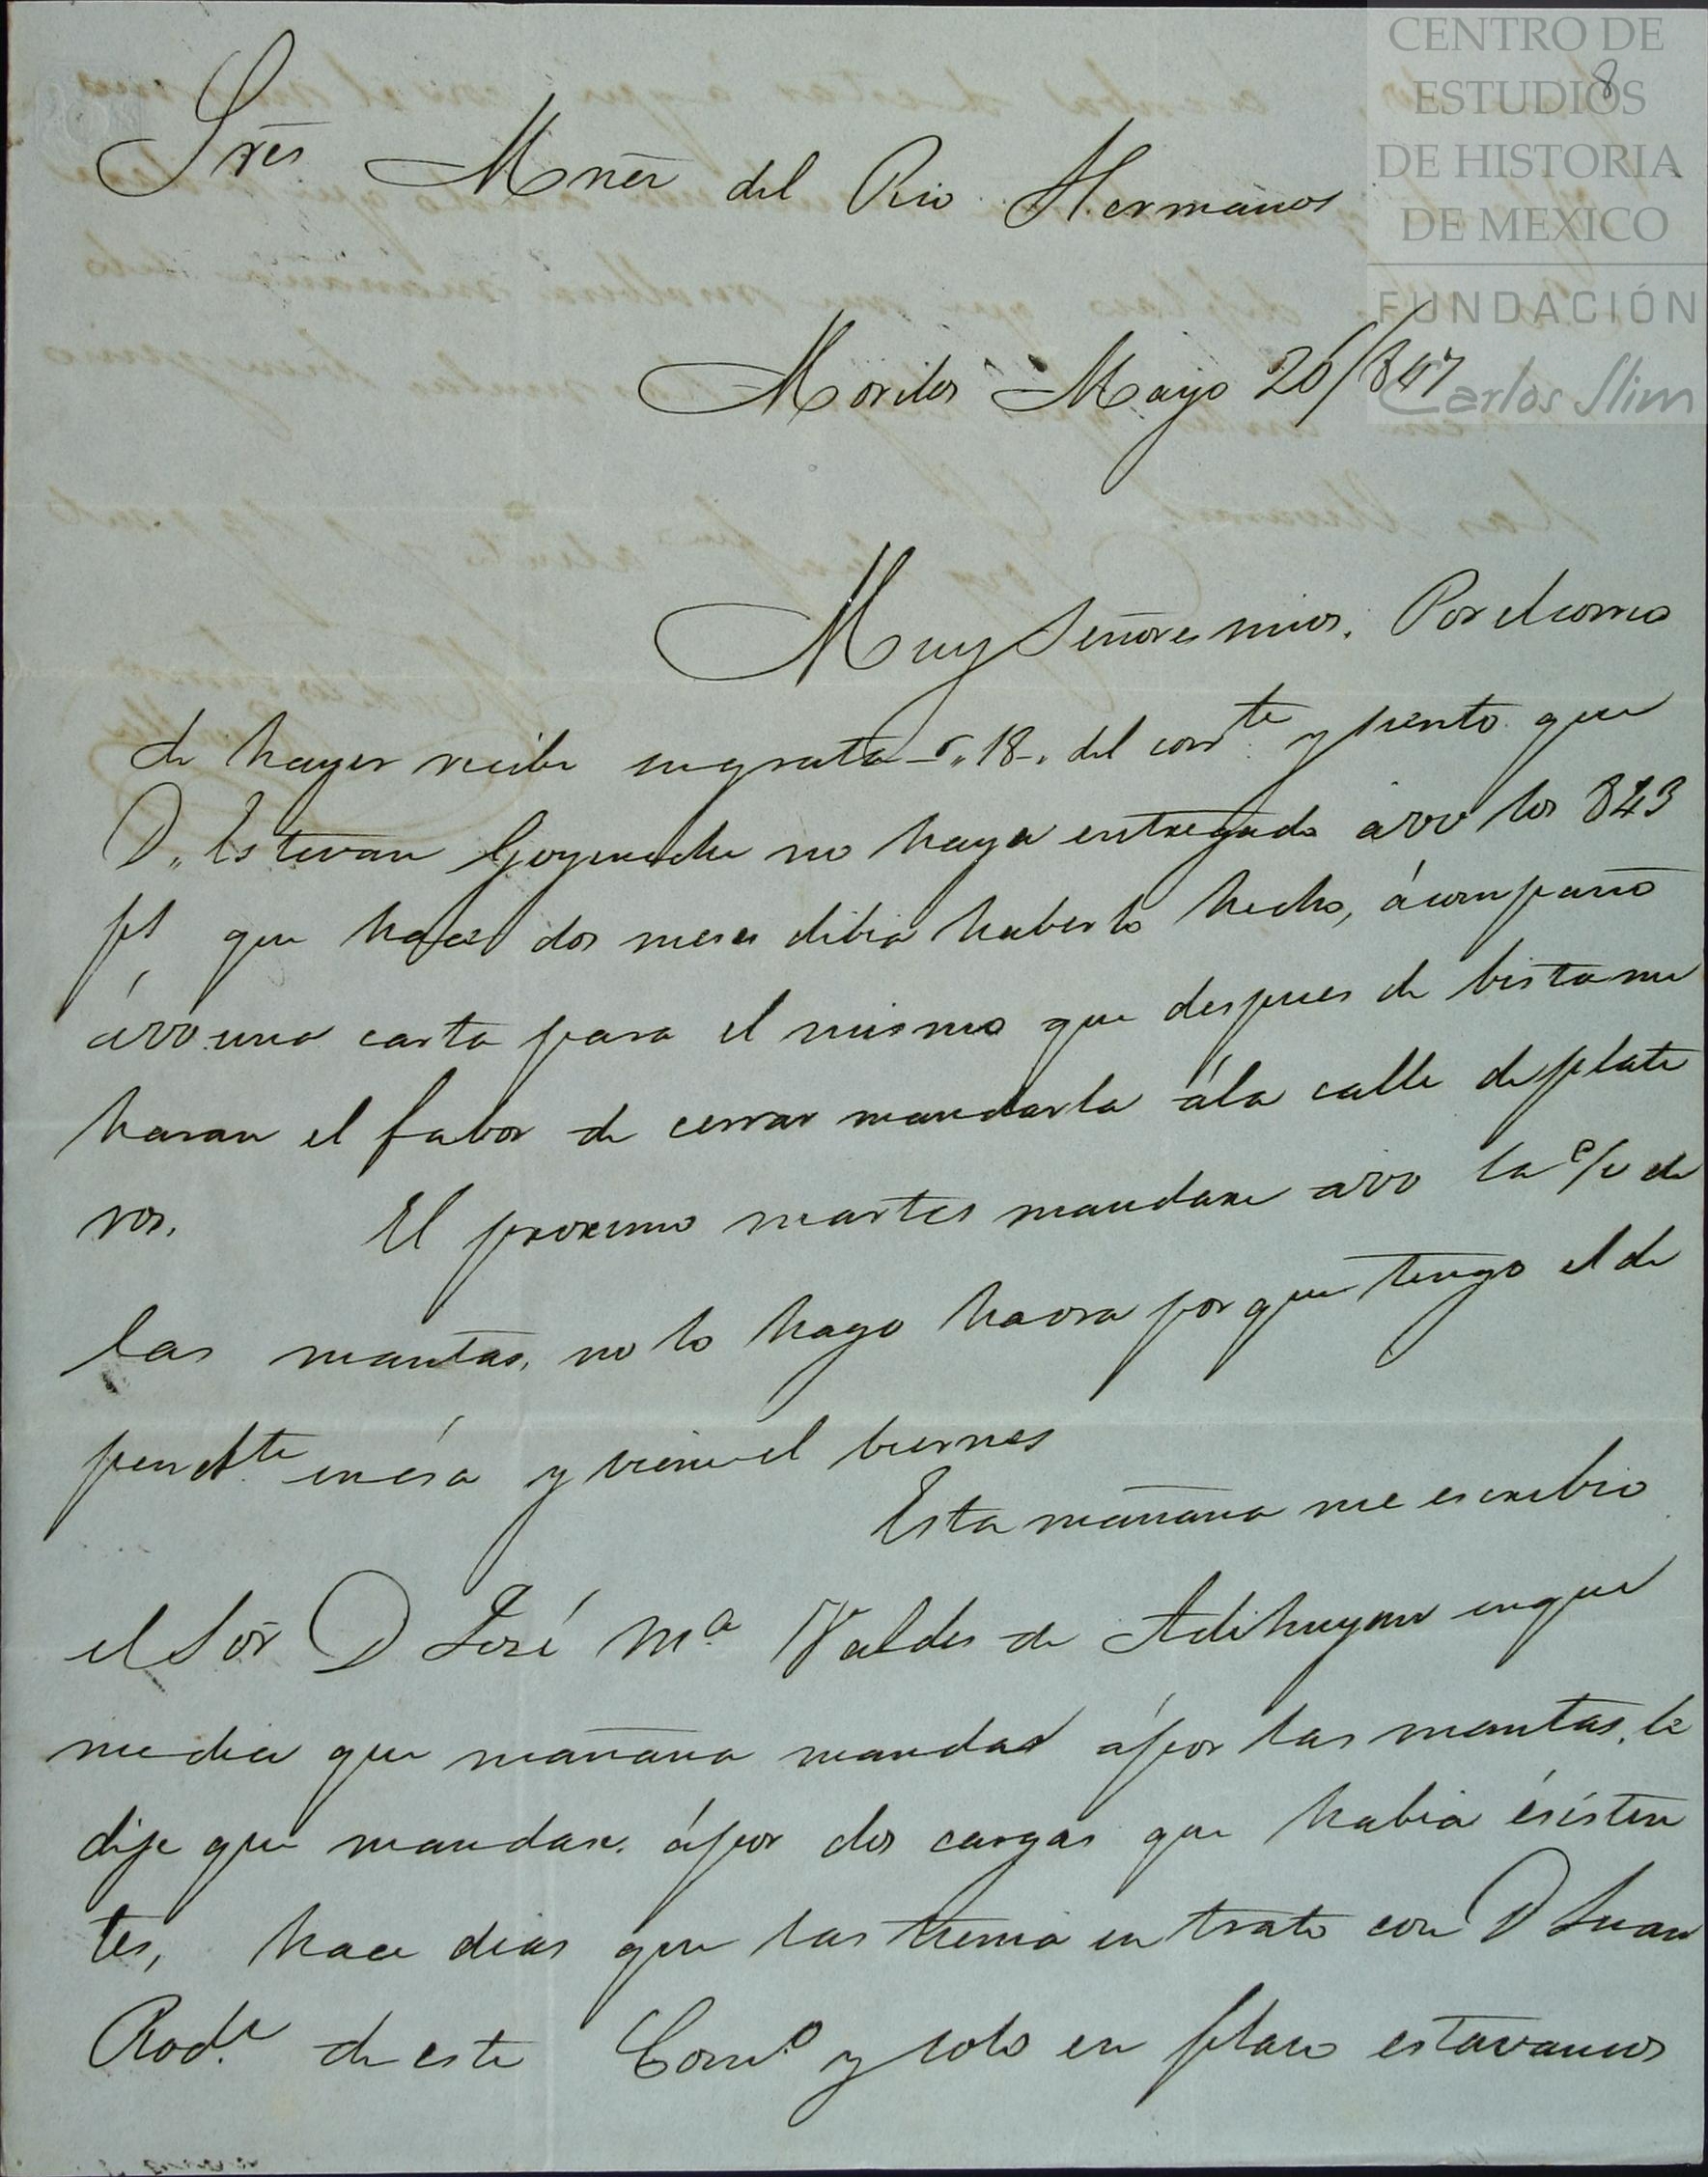 CENTRO DE
ESTUDIOS
DE HISTORIA
DE MEXICO
FUNDACIÓN
Carlos Slim
8
Sres Mner del Rio Hermanos
Morelos Mayo 20/847
Muy Señores mios. Por el correo
de hayer recibi su grata 18 del corrte y siento que
D. Estevan Goyeneche no haya entregado a vv los 823
ps que hace dos meses debia haberlo hecho, ácompaño
á vv una carta para el mismo que despues de bista me
haran el fabor de cerrar mandarla á la calle de plate
ros. El proximo martes mandare a vv la c/v de
las mantas, no lo hago haora por que tengo el de
pendte en ésa y viene el biernes
Esta mañana me escribio
el Sor D José Ma Valdes de en que
me dice que mañana manda á por las mantas, le
dije que mandase á por dos cargas que habia ésisten
tes, hace dias que las tenia en trato con D Juan
Rodz de este Como y solo en plazo estavamos